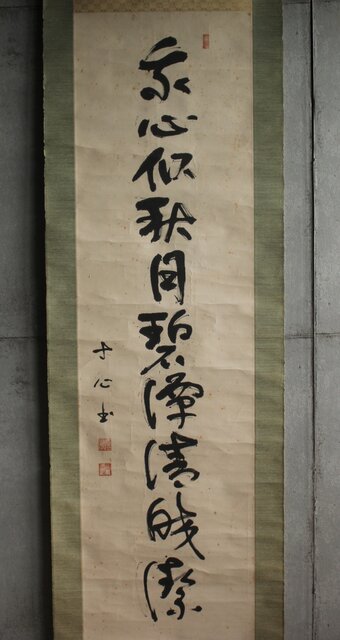 吾心似秋月碧潭清皎潔
寸心書